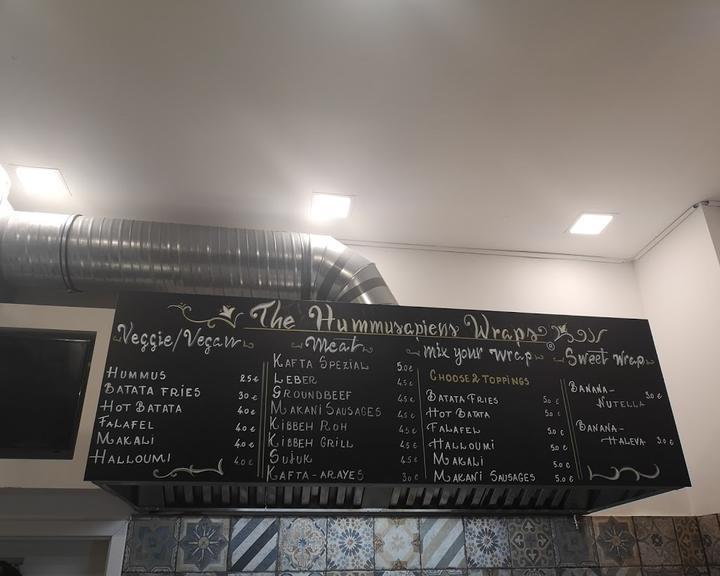 The Hummusapiens Wraps
Veggie/Vegan
HUMMUS 2.5 €
BATATA FRIES 3.0 €
HOT BATATA 4.0 €
FALAFEL 4.0 €
MAKALI 4.0 €
HALLOUMI 4.0 €
Meat
KAFTA SPEZIAL 5.0 €
LEBER 4.5 €
GROUNDBEEF 4.5 €
MAKANI SAUSAGES 4.5 €
KIBBEH ROH 4.5 €
KIBBEH GRILL 4.5 €
SUJUK 4.5 €
KAFTA-ARAYES 3.0 €
mix your wrap
CHOOSE 2 TOPPINGS
BATATA FRIES 5.0 €
HOT BATATA 5.0 €
FALAFEL 5.0 €
HALLOUMI 5.0 €
MAKALI 5.0 €
MAKANI SAUSAGES 5.0 €
Sweet wrap
BANANA-
NUTELLA 3.0 €
BANANA-
HALEVA 3.0 €